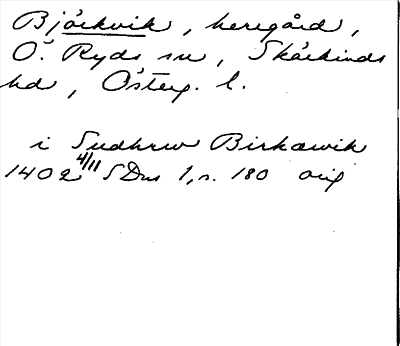 Björkvik, heregård,
Ö. Ryds sn, Skärkinds
hd, Österg. l.
i Sudhrw Birkawik
1402 4/11 SDns 1, s. 180 orig